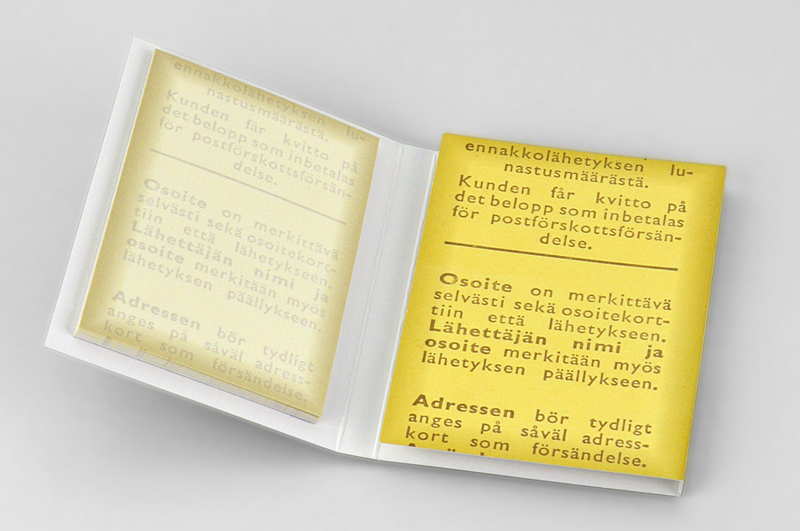 ennakkolähetyksen lu-
nastusmäärästä.
Kunden får kvitto på
det belopp som inbetalas
för postförskottsförsän-
delse.
Osoite on merkittävä
selvästi sekä osoitekort-
tiin että lähetykseen.
Lähettäjän nimi ja
osoite merkitään myös
lähetyksen päällykseen.
Adressen bör tydligt
anges på såväl adress-
kort som försändelse.
ennakkolähetyksen lu-
nastusmäärästä.
Kunden får kvitto på
det belopp som inbetalas
för postförskottsförsän-
delse.
Osoite on merkittävä
selvästi sekä osoitekort-
tiin että lähetykseen.
Lähettäjän nimi ja
osoite merkitään myös
lähetyksen päällykseen.
Adressen bör tydligt
anges på såväl adress-
kort som försändelse.